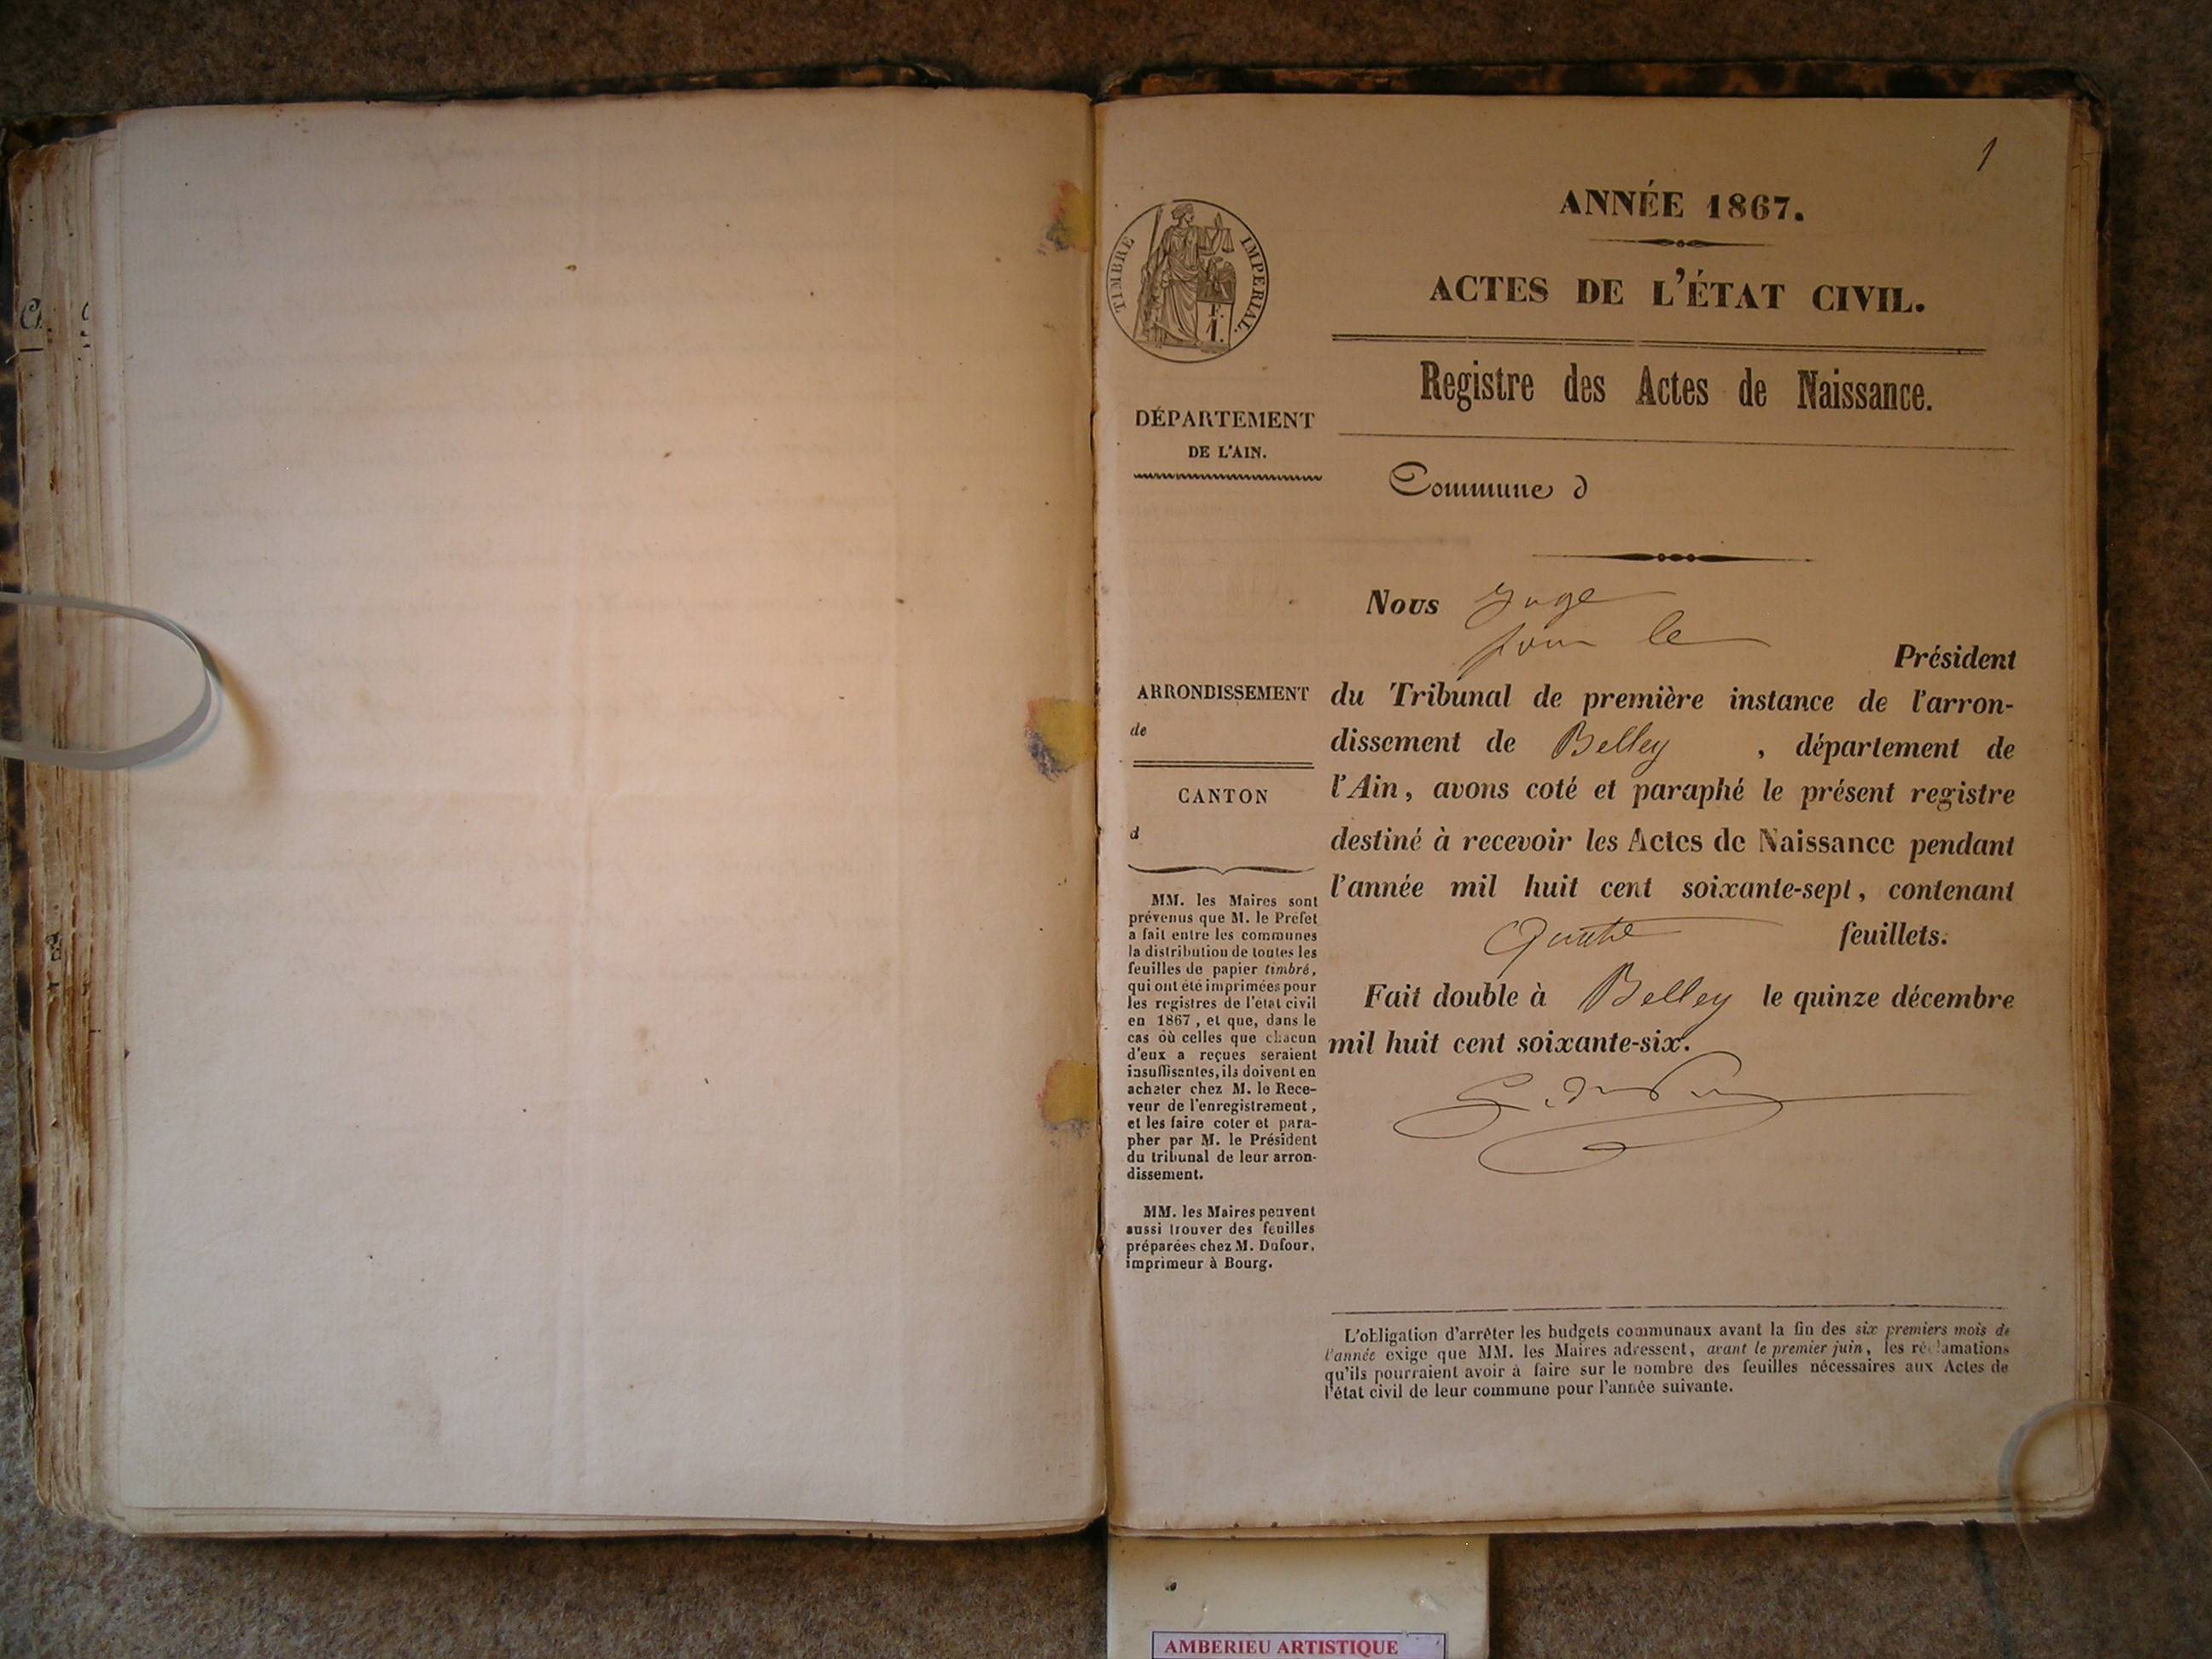 1
ANNÉE 1867.
ACTES DE L'ÉTAT CIVIL.
Registre des Actes de Naissance.
Commune d
TIMBRE IMPERIAL.
F.
1.
DÉPARTEMENT
DE L'AIN.
ARRONDISSEMENT
de
CANTON
d
MM. les Maires sont
prévenus que M. le Préfet
a fait entre les communes
la distribution de toutes les
feuilles de papier timbré,
qui ont été imprimées pour
les registres de l'état civil
en 1867, et que, dans le
cas où celles que chacun
d'eux a reçues seraient
insuffisantes, ils doivent en
acheter chez M. le Rece-
veur de l'enregistrement,
et les faire coter et para-
pher par M. le Président
du tribunal de leur arron-
dissement.
MM. les Maires peuvent
aussi trouver des feuilles
préparées chez M. Dufour,
imprimeur à Bourg.
Nous Juge
pour le
Président
du Tribunal de première instance de l'arron-
dissement de Belley , département de
l'Ain, avons coté et paraphé le présent registre
destiné à recevoir les Actes de Naissance pendant
l'année mil huit cent soixante-sept, contenant
Quatre feuillets.
Fait double à Belley le quinze décembre
mil huit cent soixante-six.
L'obligation d'arrêter les budgets communaux avant la fin des six premiers mois de
l'année exige que MM. les Maires adressent, avant le premier juin, les réclamations
qu'ils pourraient avoir à faire sur le nombre des feuilles nécessaires aux Actes de
l'état civil de leur commune pour l'année suivante.
AMBERIEU ARTISTIQUE